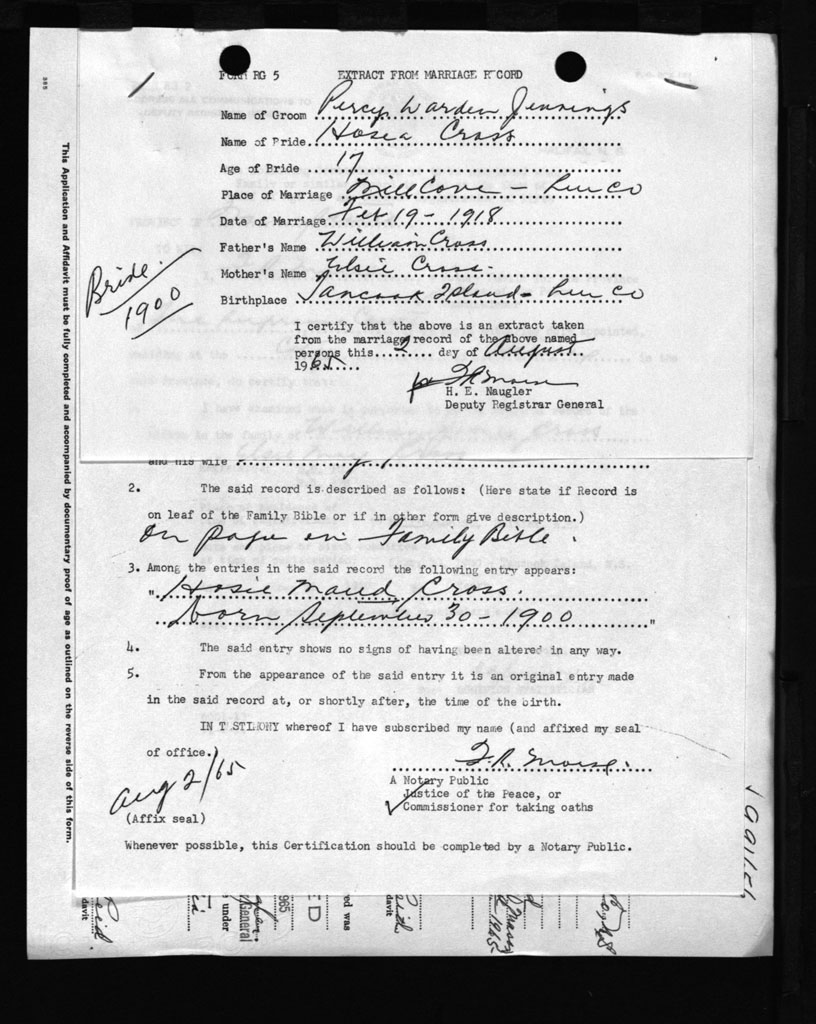 FORM RG 5 EXTRACT FROM MARRIAGE RECORD
Name of Groom Percy Warden Jennings
Name of Bride Hosea Cross
Age of Bride 17
Place of Marriage Mill Cove - Lun Co
Date of Marriage Feb 19 - 1918
Father's Name William Cross
Mother's Name Elsie Cross
Birthplace Tancook Island - Lun Co
Bride.
1900
I certify that the above is an extract taken
from the marriage record of the above named
persons this 2 day of August
1965
H. E. Naugler
Deputy Registrar General
and his wife
2. The said record is described as follows: (Here state if Record is
on leaf of the Family Bible or if in other form give description.)
On page in Family Bible.
3. Among the entries in the said record the following entry appears:
" Hosie Maud Cross.
born September 30 - 1900 "
4. The said entry shows no signs of having been altered in any way.
5. From the appearance of the said entry it is an original entry made
in the said record at, or shortly after, the time of the birth.
IN TESTIMONY whereof I have subscribed my name (and affixed my seal
of office.)
A Notary Public
Justice of the Peace, or
Commissioner for taking oaths
Aug 2/65
(Affix seal)
Whenever possible, this Certification should be completed by a Notary Public.
This Application and Affidavit must be fully completed and accompanied by documentary proof of age as outlined on the reverse side of this form.
Reid
davit
under
General
965
ED
red was
davit
1965